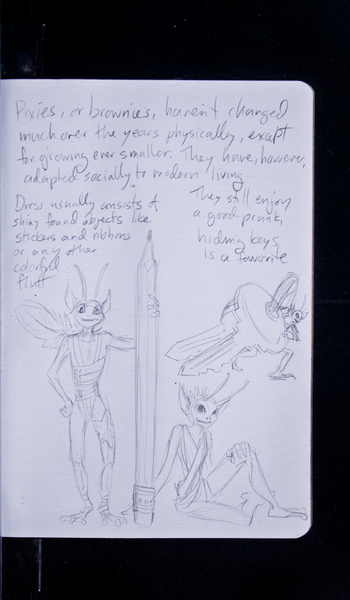 Pixies, or brownies, haven't changed
much over the years physically, except
for growing ever smaller. They have, however,
adapted socially to modern living.
Dress usually consists of
shiny found objects like
stickers and ribbons
or any other
colorful
fluff
They still enjoy
a good prank,
hiding keys
is a favorite